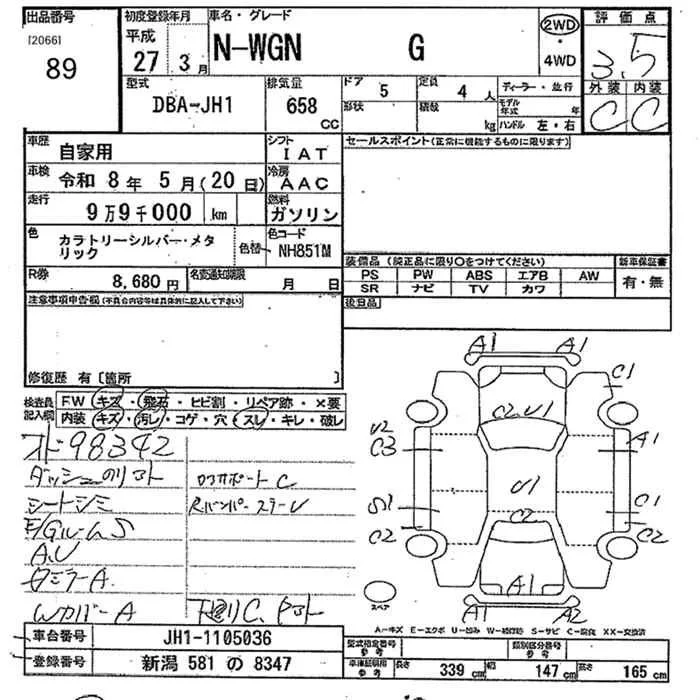 出品番号 初度登録年月 車名・グレード 2WD ・ 4WD 評価点
[2066] 89 平成 27 3月 N-WGN G 3.5
型式 DBA-JH1 排気量 658 CC ドア 5 定員 4人 ディーラー・並行 外装 内装
形状 積載 kg モデル年式 年 ハンドル 左・右 C C
車歴 自家用 シフト IAT セールスポイント(正常に機能するものに限ります)
車検 令和 8年 5月(20日) 冷房 AAC
走行 9万9千000 km 燃料 ガソリン
色 カラトリーシルバー・メタリック 色替 色コード NH851M
装備品(純正品に限り〇をつけてください) 新車保証書
PS PW ABS エアB AW 有・無
SR ナビ TV カワ
R券 8,680円 名変通知期限 月 日 後日品
注意事項申告欄(不具合内容等は具体的に記入して下さい)
修復歴 有〔箇所 〕
検査員記入欄 FW キズ・飛石・ヒビ割・リペア跡・×要
内装 キズ・汚レ・コゲ・穴・スレ・キレ・破レ
98342
シートシミ
A.U
Wカバー A
A1 A1
C1
C2 U1
U2
C3 A1
U1
S1 C1
C2 C2 C2
A1
A1 A2
スペア
A-キズ E-エクボ U-凹み S-サビ C-腐食 XX-交換済
車台番号 JH1-1105036 型式指定番号 参考 類別区分番号 参考
登録番号 新潟 581 の 8347 車庫証明用 参考 長さ 339 cm 幅 147 cm 高さ 165 cm